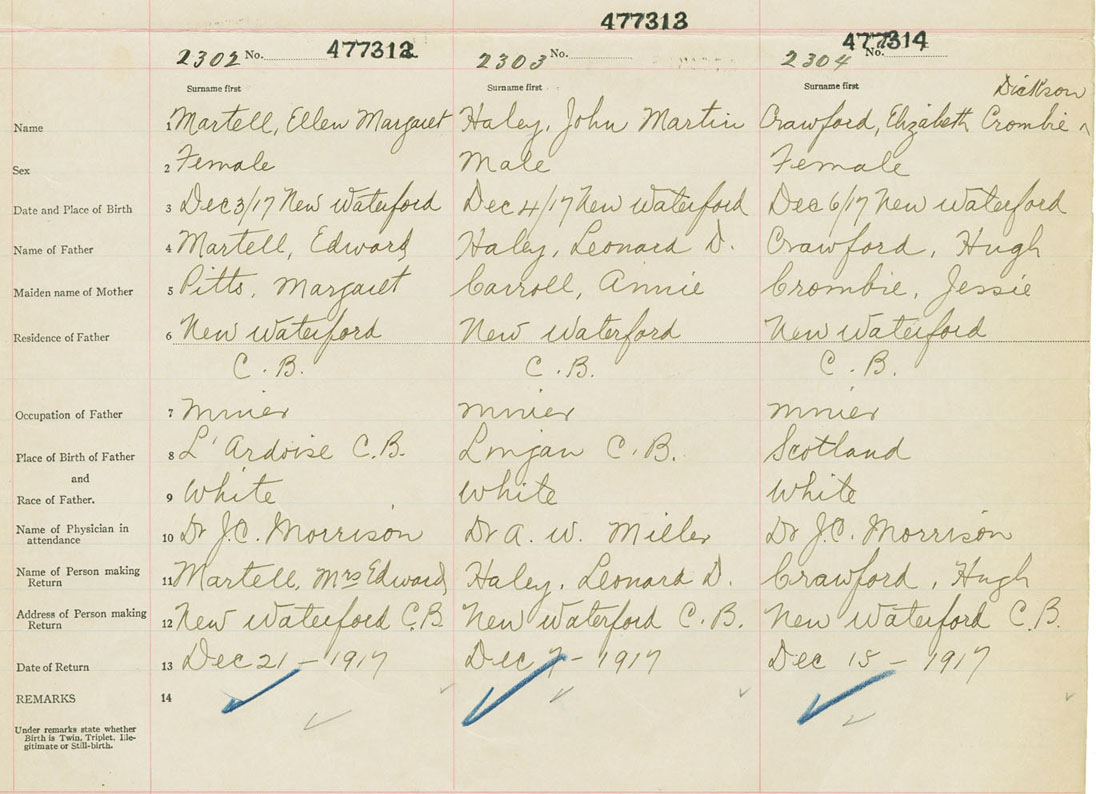 477313
2302 No. 477312 2303 No. 2304 No. 477314
Surname first Surname first Surname first Dickson
Name 1 Martell, Ellen Margaret Haley, John Martin Crawford, Elizabeth Crombie ^
Sex 2 Female Male Female
Date and Place of Birth 3 Dec 3/17 New Waterford Dec 4/17 New Waterford Dec 6/17 New Waterford
Name of Father 4 Martell, Edward Haley, Leonard D. Crawford, Hugh
Maiden name of Mother 5 Pitts, Margaret Carroll, Annie Crombie, Jessie
Residence of Father 6 New Waterford New Waterford New Waterford
C.B. C.B. C.B.
Occupation of Father 7 miner miner miner
Place of Birth of Father 8 L'Ardoise C.B. Lingan C.B. Scotland
and
Race of Father. 9 White White White
Name of Physician in
attendance 10 Dr J.C. Morrison Dr A. W. Miller Dr J.C. Morrison
Name of Person making
Return 11 Martell, Mrs Edward Haley, Leonard D. Crawford, Hugh
Address of Person making
Return 12 New Waterford C.B. New Waterford C.B. New Waterford C.B.
Date of Return 13 Dec 21 - 1917 Dec 7 - 1917 Dec 15 - 1917
REMARKS 14
Under remarks state whether
Birth is Twin, Triplet, Ille-
gitimate or Still-birth.